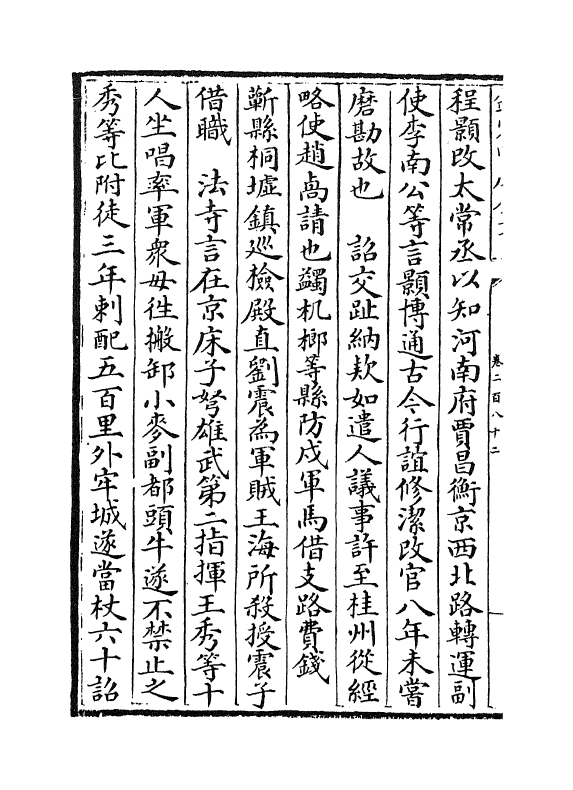 卷二百八十二
程顥改太常丞以知河南府賈昌衡京西北路轉運副
使李南公等言顥博通古今行誼修潔改官八年未嘗
磨勘故也　詔交趾納欵如遣人議事許至桂州從經
略使趙卨請也蠲机榔等縣防戍軍馬借支路費錢
蘄縣桐墟鎮廵檢殿直劉震為軍賊王海所殺授震子
借職　法寺言在京床子弩雄武第二指揮王秀等十
人坐唱率軍衆毋徃搬卸小麥副都頭牛遂不禁止之
秀等比附徒三年刺配五百里外牢城遂當杖六十詔